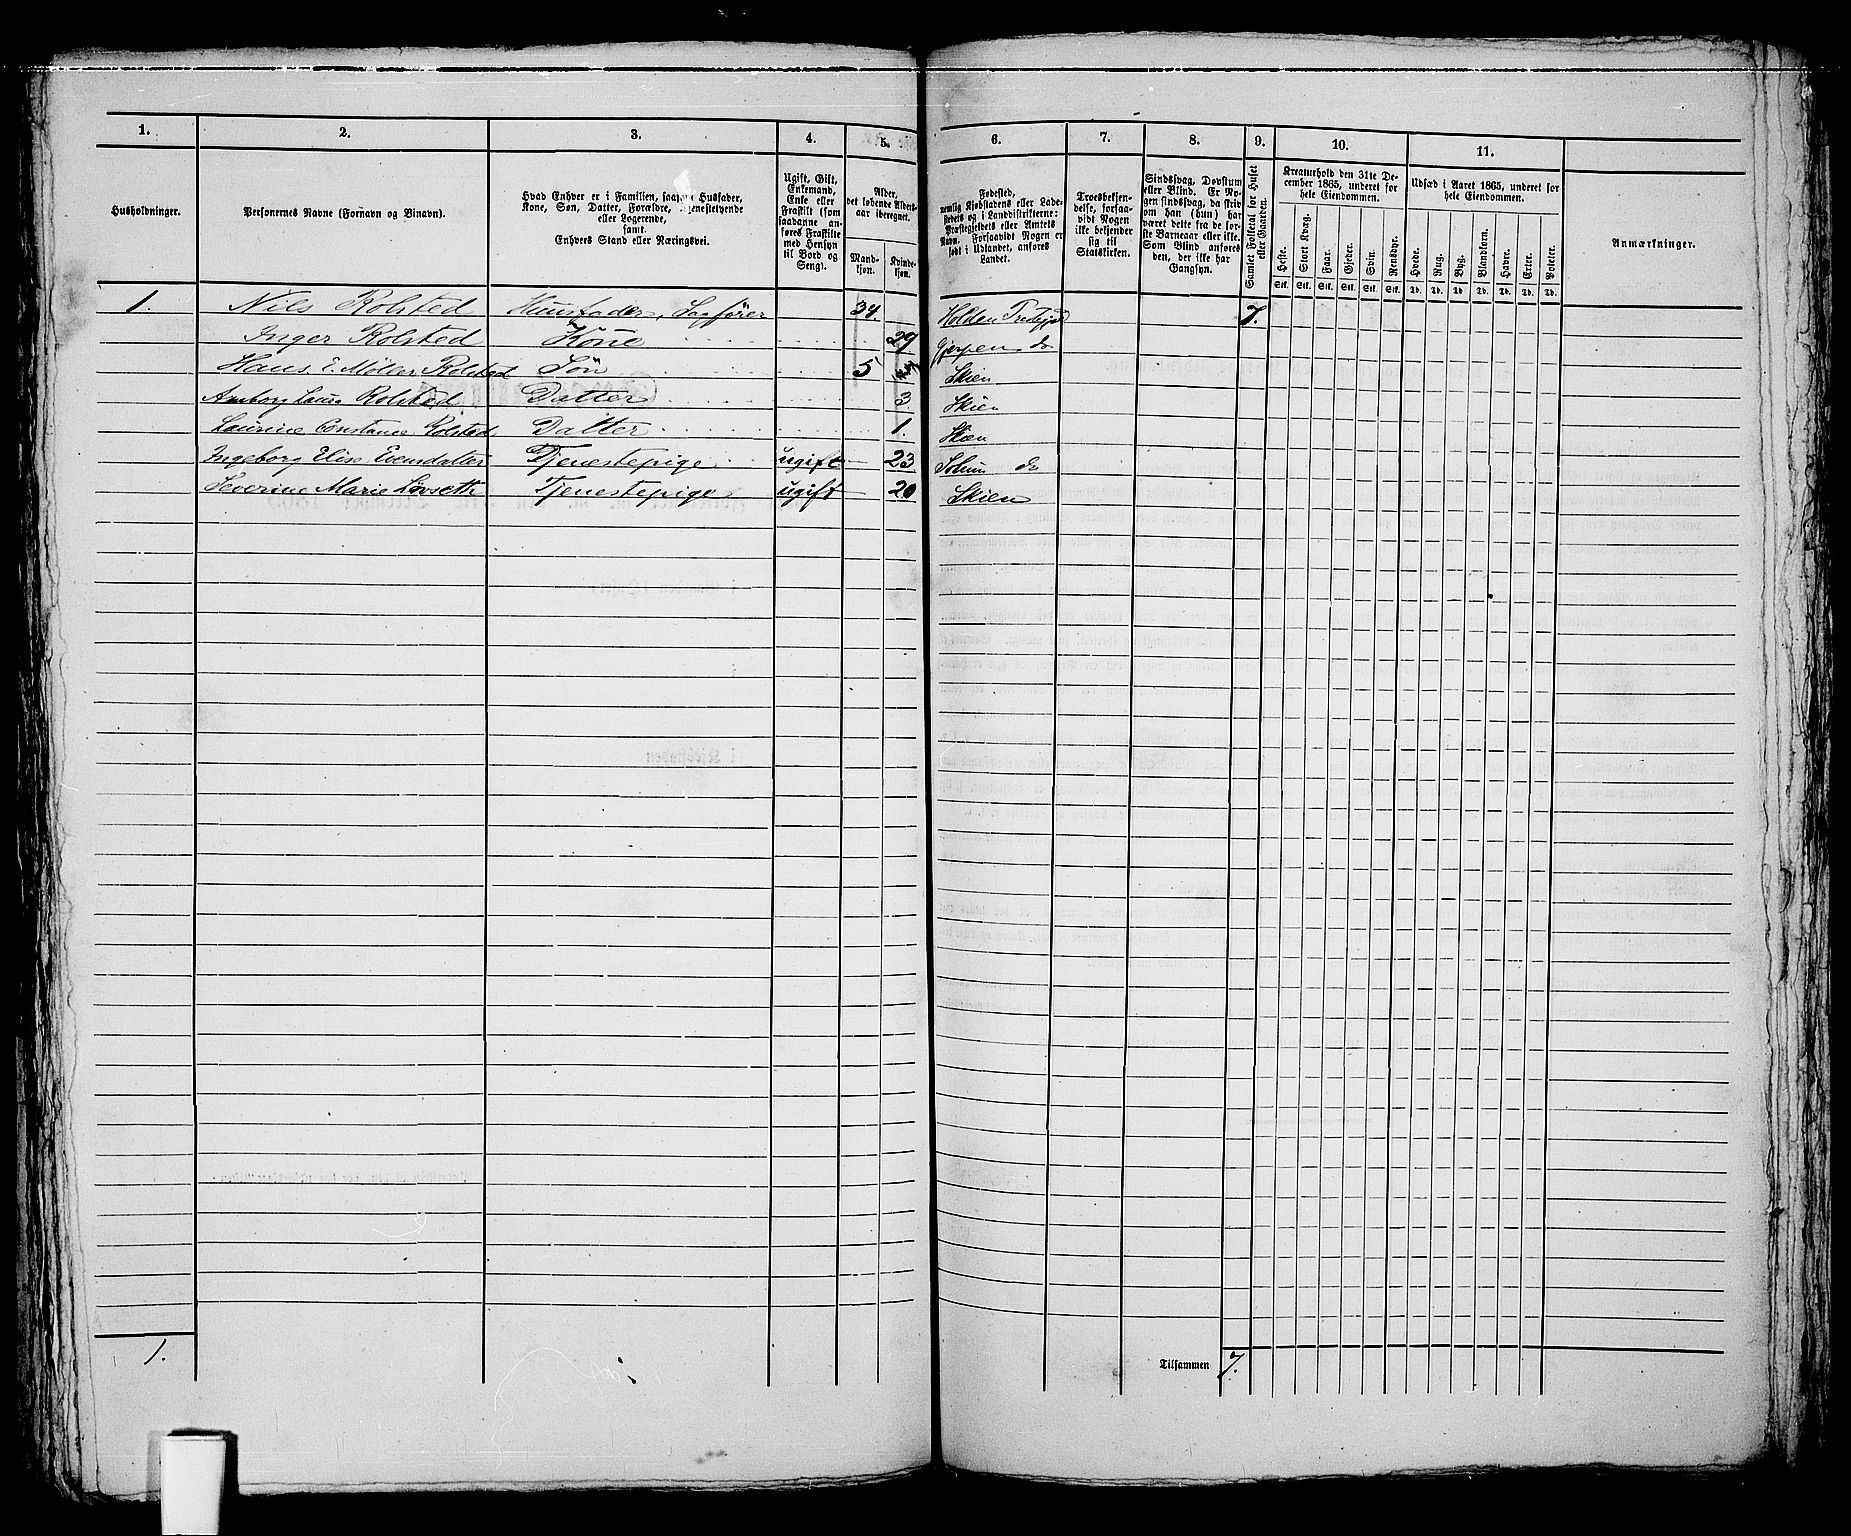 1. 2. 3. 4. 5. 6. 7. 8. 9. 10. 11.
Husholdninger.
Personernes Navne (Fornavn og Binavn).
Hvad Enhver er i Familien, saasom Husfader,
Kone, Søn, Datter, Forældre, Tjenestetyende
eller Logerende,
samt
Enhvers Stand eller Næringsvei.
Ugift, Gift,
Enkemand,
Enke eller
Fraskilt (som
saadanne an-
føres Fraskilte
med Hensyn
til Bord og
Seng).
Alder,
det løbende Alders-
aar iberegnet.
Mand-
kjøn.
Kvinde-
kjøn.
Fødested,
nemlig Kjøbstadens eller Lade-
stedets og i Landdistrikterne:
Præstegjeldets eller Amtets
Navn. Forsaavidt Nogen er
født i Udlandet, anføres
Landet.
Troesbekjen-
delse, forsaa-
vidt Nogen
ikke bekjender
sig til
Statskirken.
Sindssvag, Døvstum
eller Blind. Er No-
gen sindssvag, da skriv
om han (hun) har
været dette fra de før-
ste Barneaar eller ikke.
Som Blind anføres
den, der ikke har
Gangsyn.
Samlet Folketal for Huset
eller Gaarden.
Kreaturhold den 31te De-
cember 1865, underet for
hele Eiendommen.
Heste. Stort Kvæg. Faar. Gjeder. Svin. Rensdyr.
Stk. Stk. Stk. Stk. Stk. Stk.
Udsæd i Aaret 1865, underet for
hele Eiendommen.
Hvede. Rug. Byg. Blandkorn. Havre. Erter. Poteter.
Td. Td. Td Td. Td. Td. Td.
Anmærkninger.
1. Nils Rolsted Huusfader, Sagfører 34. Holden 7.
Inger Rolsted Kone 29 Gjerpen do
Hans E. Møller Rolsted Søn 5 Skien
Rolsted Datter 3 Skien
Laurine Constance Rolsted Datter 1. Skien
Ingeborg Elise Evensdatter Tjenestepige ugift 23 Solum do
Severine Marie Tjenestepige ugift 20 Skien
1.
Tilsammen 7.